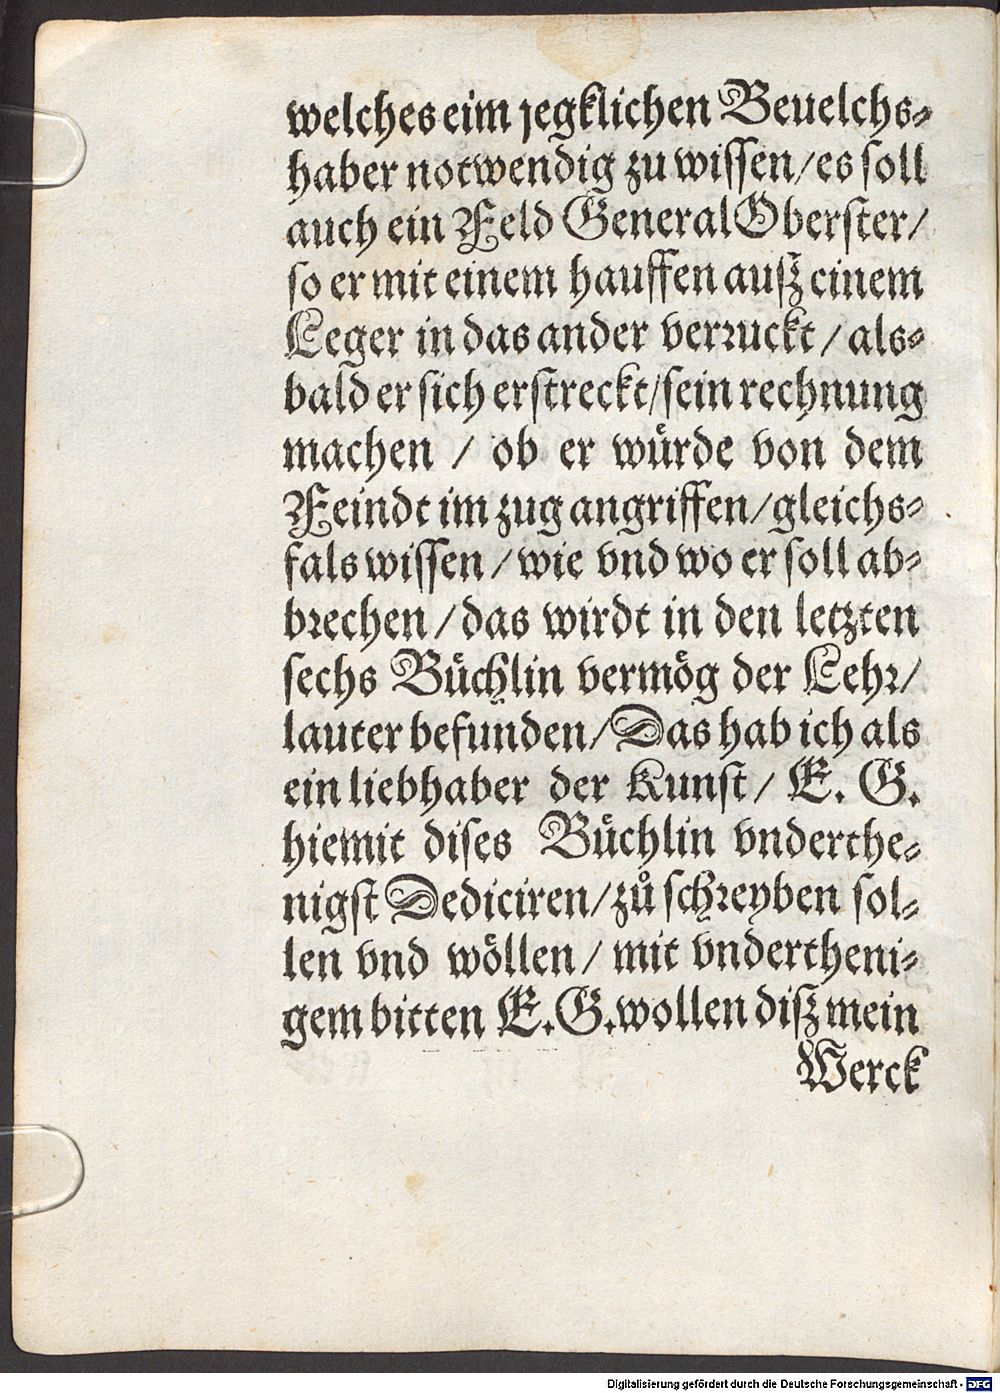 welches eim jegklichen Beuelchs⸗
haber notwendig zu wissen/es soll
auch ein Feld General Oberster/
so er mit einem hauffen ausz einem
Leger in das ander verruckt / als⸗
bald er sich erstreckt/sein rechnung
machen / ob er würde von dem
Feindt im zug angriffen/gleichs⸗
fals wissen / wie vnd wo er soll ab⸗
brechen / das wirdt in den letzten
sechs Büchlin vermög der Lehr/
lauter befunden/Das hab ich als
ein liebhaber der Kunst / E. G.
hiemit dises Büchlin vnderthe⸗
nigst Dediciren/zů schreyben sol⸗
len vnd wöllen / mit vndertheni⸗
gem bitten E.G.wollen disz mein
Werck
Digitalisierung gefördert durch die Deutsche Forschungsgemeinschaft - DFG